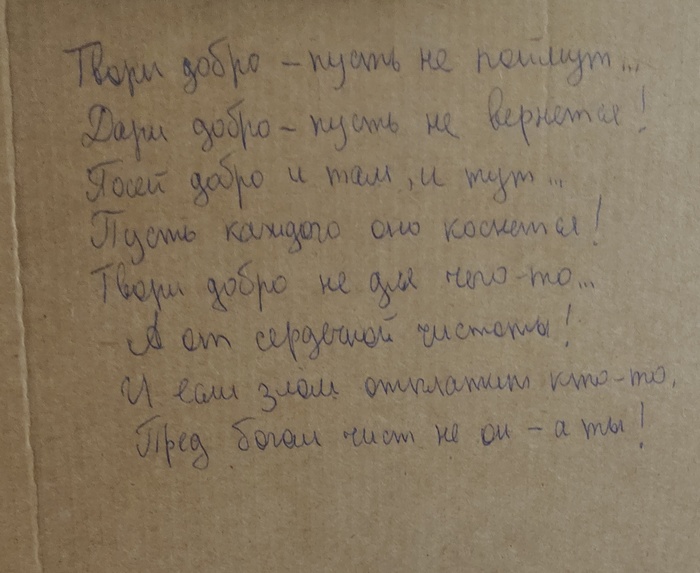 Твори добро – пусть не поймут...
Дари добро – пусть не вернется!
Посей добро и там, и тут...
Пусть каждого оно коснется!
Твори добро не для чего-то...
А от сердечной чистоты!
И если злом отплатит кто-то,
Пред богом чист не он – а ты!